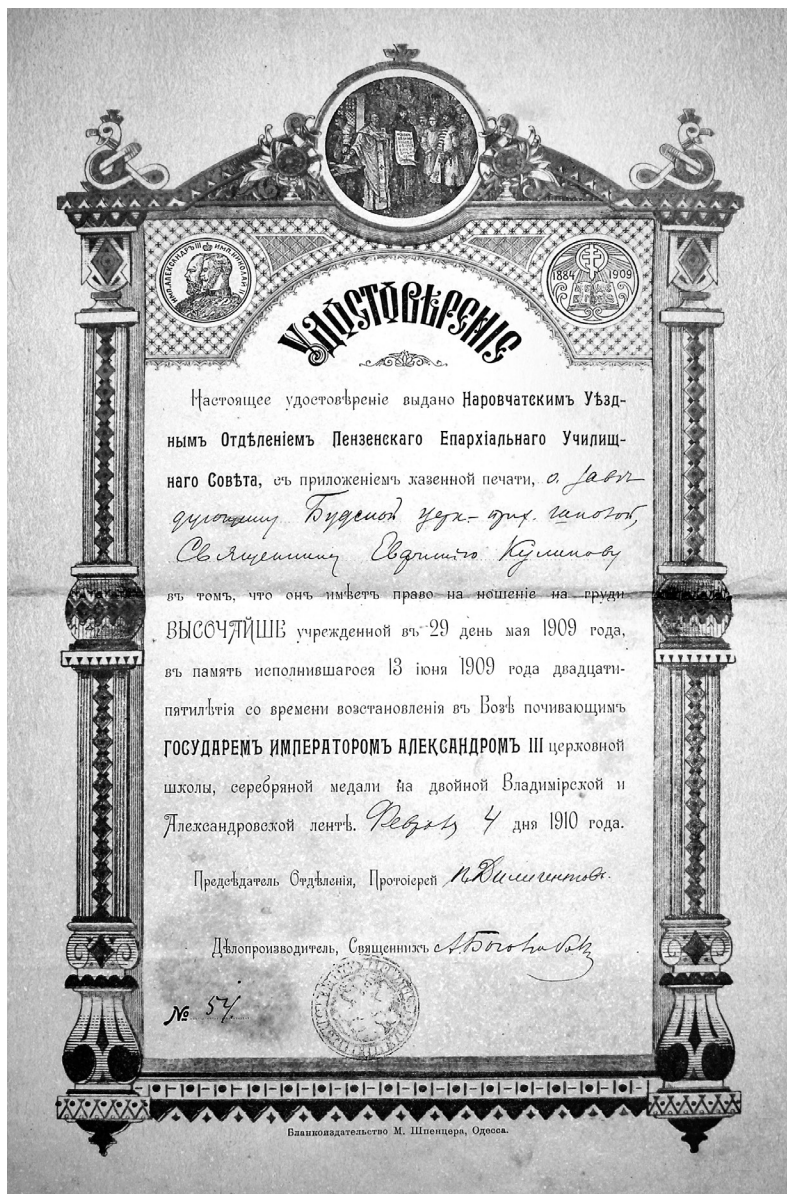 ИМП. АЛЕКСАНДРЪ III ИМП. НИКОЛАЙ II
1884 1909
УДОСТОВѢРЕНІЕ
Настоящее удостовѣреніе выдано Наровчатскимъ Уѣзд-
нымъ Отдѣленіемъ Пензенскаго Епархіальнаго Училищ-
наго Совѣта, съ приложеніемъ казенной печати, о. завѣ-
дующему Будской церк.-прих. школой,
Священнику Евфимію Куликову
въ томъ, что онъ имѣетъ право на ношеніе на груди
ВЫСОЧАЙШЕ учрежденной въ 29 день мая 1909 года,
въ память исполнившагося 13 іюня 1909 года двадцати-
пятилѣтія со времени возстановленія въ Бозѣ почивающимъ
ГОСУДАРЕМЪ ИМПЕРАТОРОМЪ АЛЕКСАНДРОМЪ III церковной
школы, серебряной медали на двойной Владимірской и
Александровской лентѣ. Февраля 4 дня 1910 года.
Предсѣдатель Отдѣленія, Протоіерей П. Дилигентовъ.
Дѣлопроизводитель, Священникъ А.
№ 54
Бланкоиздательство М. Шпенцера, Одесса.